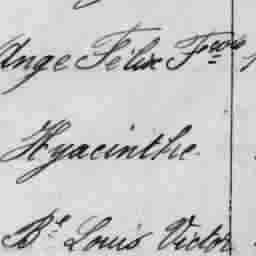 Ange Félix Frois
Hyacinthe
Bte Louis Victor